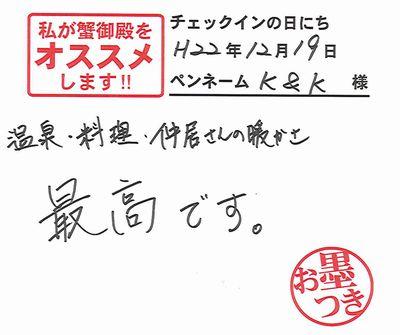 私が蟹御殿を
オススメ
します!!
チェックインの日にち
H22年12月19日
ペンネーム K&K 様
温泉・料理・仲居さんの暖かさ
最高です。
お墨
つき